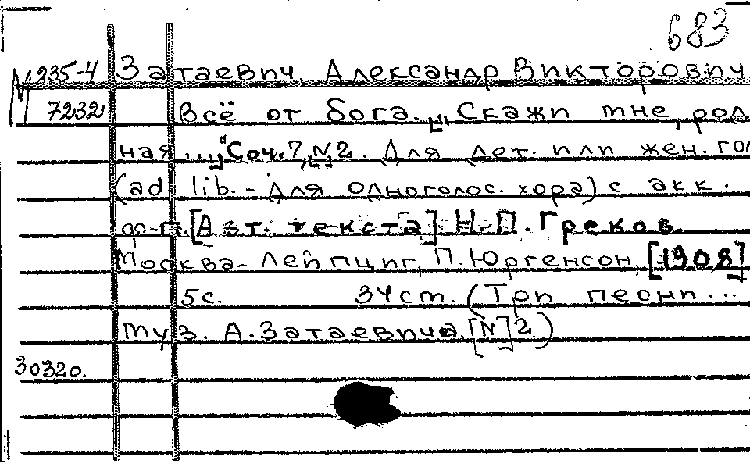 683
М 235-4 Затаевич, Александр Викторович
7232 Всё от бога. „Скажи мне, род
ная...“ Соч. 7, №2. Для дет. или жен. гол
(ad lib. - для одноголос. хора) с акк.
ф-п. [Авт. текста] Н. П. Греков.
Москва - Лейпциг, П. Юргенсон, [1908]
5 с. 34 см. (Три песни...
муз. А. Затаевича. [№] 2)
30320.